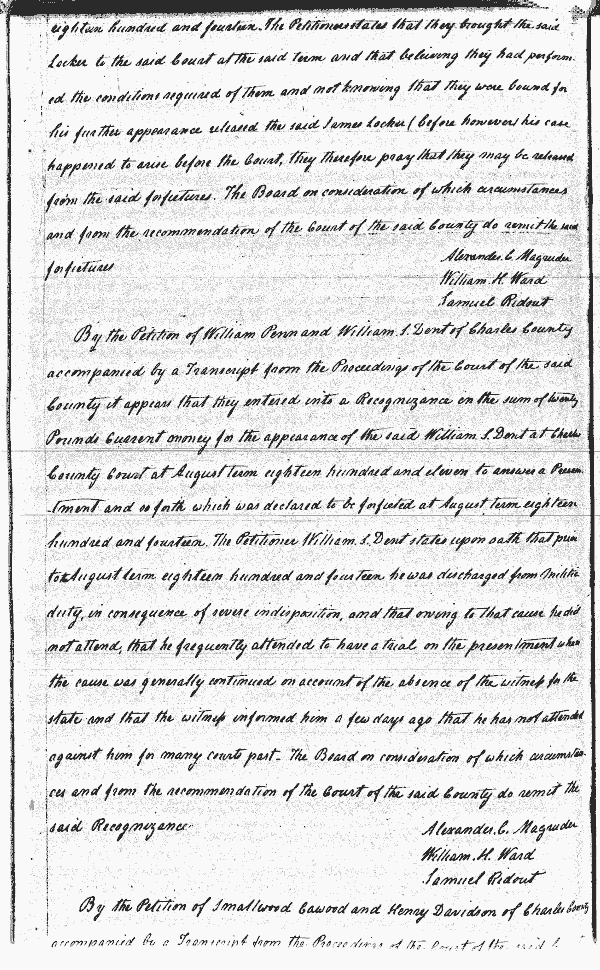 eighteen hundred and fourteen. The Petitioners states that they brought the said
Locker to the said Court at the said term and that believing they had perform-
ed the conditions required of them and not knowing that they were bound for
his further appearance released the said James Locker (before however) his case
happened to arise before the Court, they therefore pray that they may be released
from the said forfietures. The Board on consideration of which circumstances
and from the recommendation of the Court of the said County do remit the said
forfietures
Alexander. C. Magruder
William. H. Ward
Samuel Ridout
By the Petition of William Penn and William. S. Dent of Charles County
accompanied by a Transcript from the Proceedings of the Court of the said
County it appears that they entered into a Recognizance in the sum of twenty
Pounds Current money for the appearance of the said William. S. Dent at Charles
County Court at August term eighteen hundred and eleven to answer a Presen
tment and so forth which was declared to be forfieted at August term eighteen
hundred and fourteen. The Petitioner William. S. Dent states upon oath that prior
to August term eighteen hundred and fourteen he was discharged from Militia
duty, in consequence of severe indisposition, and that owing to that cause he did
not attend, that he frequently attended to have a trial on the presentment when
the cause was generally continued on account of the absence of the witness for the
state and that the witness informed him a few days ago that he has not attended
against him for many courts past. The Board on consideration of which circumstan-
ces and from the recommendation of the Court of the said County do remit the
said Recognizance
Alexander. C. Magruder
William. H. Ward
Samuel Ridout
By the Petition of Smallwood Cawood and Henry Davidson of Charles County
accompanied by a Transcript from the Proceedings of the Court of the said